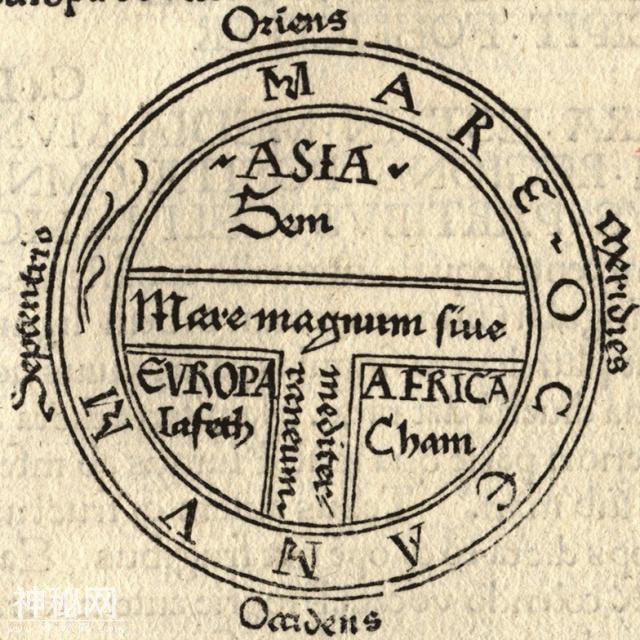 Oriens
MARE OCEANVM
ASIA
Sem
Septentrio
Meridies
Mare magnum siue
mediter/
raneum.
EVROPA
Iafeth
AFRICA
Cham
Occidens
神秘网